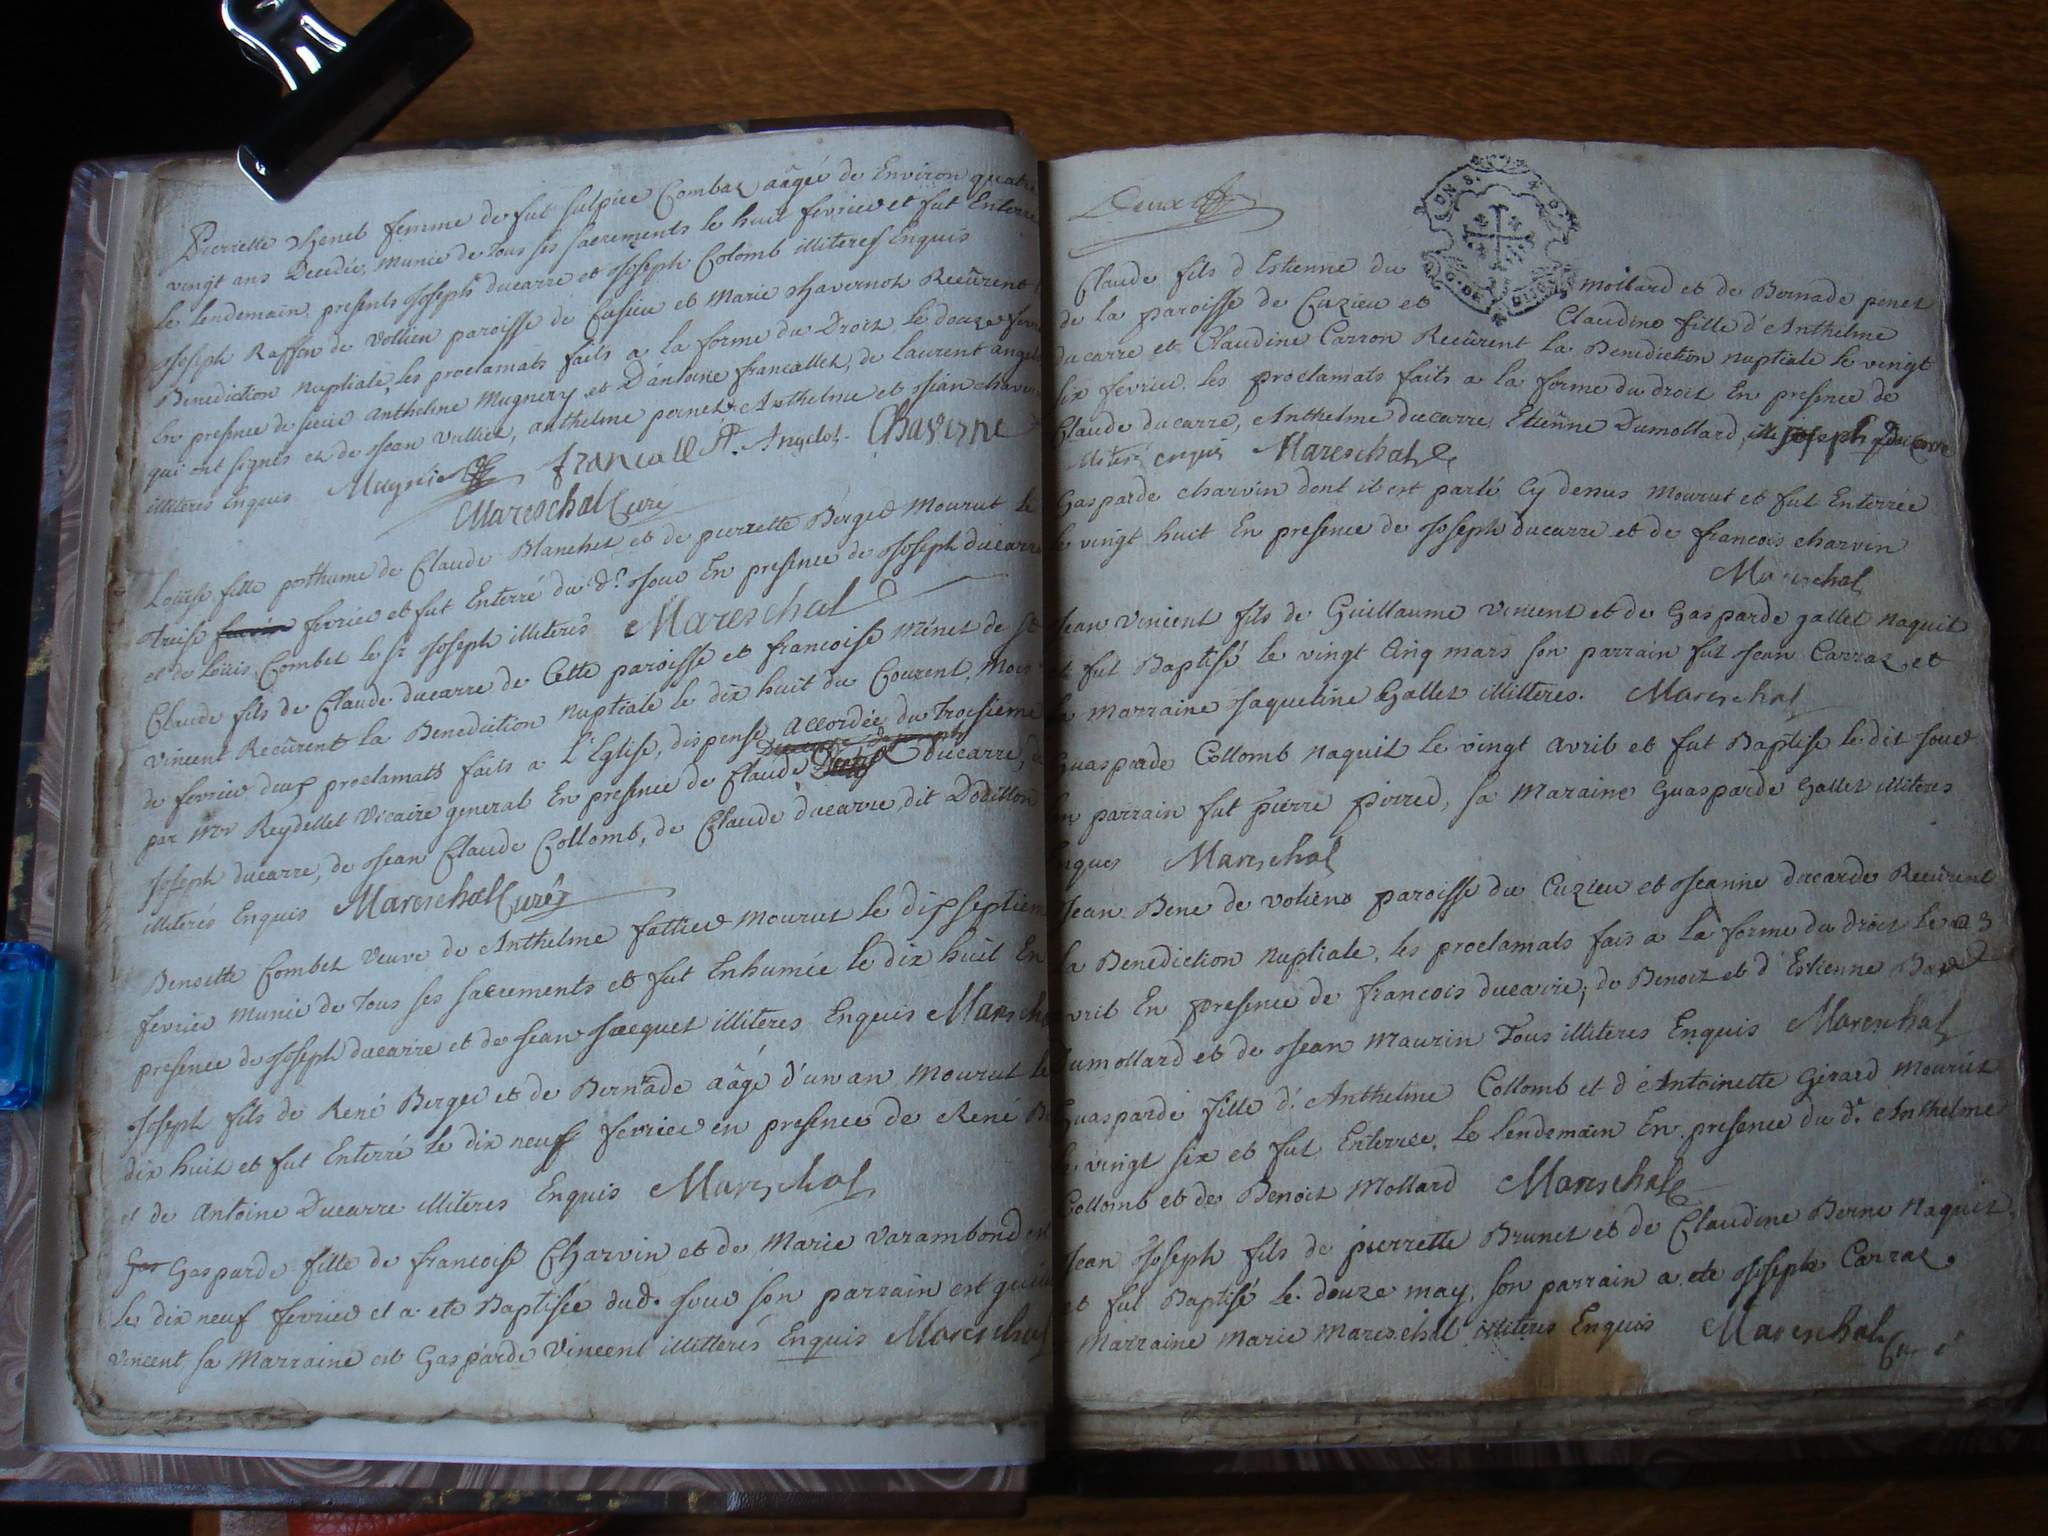 Pierrette Henet femme de fut sulpice Combaz aâgée de Environ quatre
vingt ans Decedée, munie de tous ses sacrements le huit fevrier et fut Enterrée
le Lendemain, presents Joseph ducarre et Joseph Colomb illiteres Enquis
Joseph Raffin de vollien paroisse de Cusieu et Marie Chavernoz Recûrent
Benediction nuptiale, les proclamats faits a la forme du Droit, le douze fevri
En presence de sieur anthelme Mugnery et D'antoine francallet, de Laurent angel
qui ont signés et de Jean vullier, anthelme pernet Anthelme et Jean chaver
illiteres Enquis Mugnier francalle A. Angelot Chaverne
Mareschal Curé
Louise fille posthume de Claude Blanchet et de pierrette Berger Mourut le
treise fevrier et fut Enterré du d.^t jour En presence de Joseph ducarre
et de Loüis Combet le s^r Joseph illiteres Mareschal
Claude fils de Claude ducarre de Cette paroisse et francoise minet de st
vincent Recûrent la Benediction nuptiale le dix huit du Courent, mois
de fevrier deux proclamats faits a L'Eglise, dispense accordée du troisieme
par M^r Reydellet Vicaire general En presence de Claude ducarre, de
Joseph ducarre, de Jean Claude Collomb, de Claude ducarre, dit Dodillon
illiterés Enquis Mareschal Curé
Benoitte Combet veuve de Anthelme fattier mourut le dixseptiem
fevrier munie de tous ses sacrements et fut Enhumée le dix huit En
presence de Joseph ducarre et de Jean Jacquet illiteres Enquis Maresch
Joseph fils de René Berger et de Bernade aâgé d'un an mourut le
dix huit et fut Enterré le dix neuf fevrier en presence de René Be
et de antoine Ducarre illiteres Enquis Mareschal
Gas Gasparde fille de francoise Charvin et de Marie varambond est
le dix neuf fevrier et a ete Baptisée dud. jour son parrain est guil
vincent sa Marraine est Gasparde Vincent illitterés Enquis Mareschal
Deux
Claude fils d'Estienne du mollard et de Bernade penet
de la paroisse de Cuzieu et Claudine fille d'Anthelme
ducarre et Claudine Carron Recûrent la Benediction nuptiale le vingt
six fevrier les proclamats faits a la forme du droit En presence de
Claude ducarre, Anthelme ducarre, Etiênne Dumollard, Joseph ducarre
illiter enquis Mareschal
Gasparde charvin dont il est parlé cy desus mourut et fut Enterrée
le vingt huit En presence de Joseph ducarre et de francois charvin
Mareschal
Jean vincent fils de Guillaume vincent et de Gasparde gallet naquit
et fut Baptisé le vingt Cinq mars son parrain fut Jean Carraz et
la marraine Jaqueline Gallet illitteres. Mareschal
Guasparde Collomb naquit le vingt avril et fut Baptise le dit jour
son parrain fut pierre pirred, sa Maraine Guasparde Gallet illiteres
Enques Mareschal
Jean Bene de voliens paroisse du Cuzieu et Jeanne ducarde Recûrent
la Benediction nuptiale, les proclamats fais a la forme du droit le 23
avril En presence de francois ducarre, de Benoit et d'Estienne
Dumollard et de Jean maurin Tous illiteres Enquis Mareschal
Guasparde fille d'Anthelme Collomb et d'Antoinette Girard mourut
le vingt six et fut Enterree le lendemain En presence du d.^t Anthelme
Collomb et de Benoit Mollard Mareschal
Jean Joseph fils de pierrette Brunet et de Claudine Berne naquit
et fut Baptisé le douze may, son parrain a ete Joseph Carraz.
Marraine Marie Mareschal illiteres Enquis Mareschal Curé